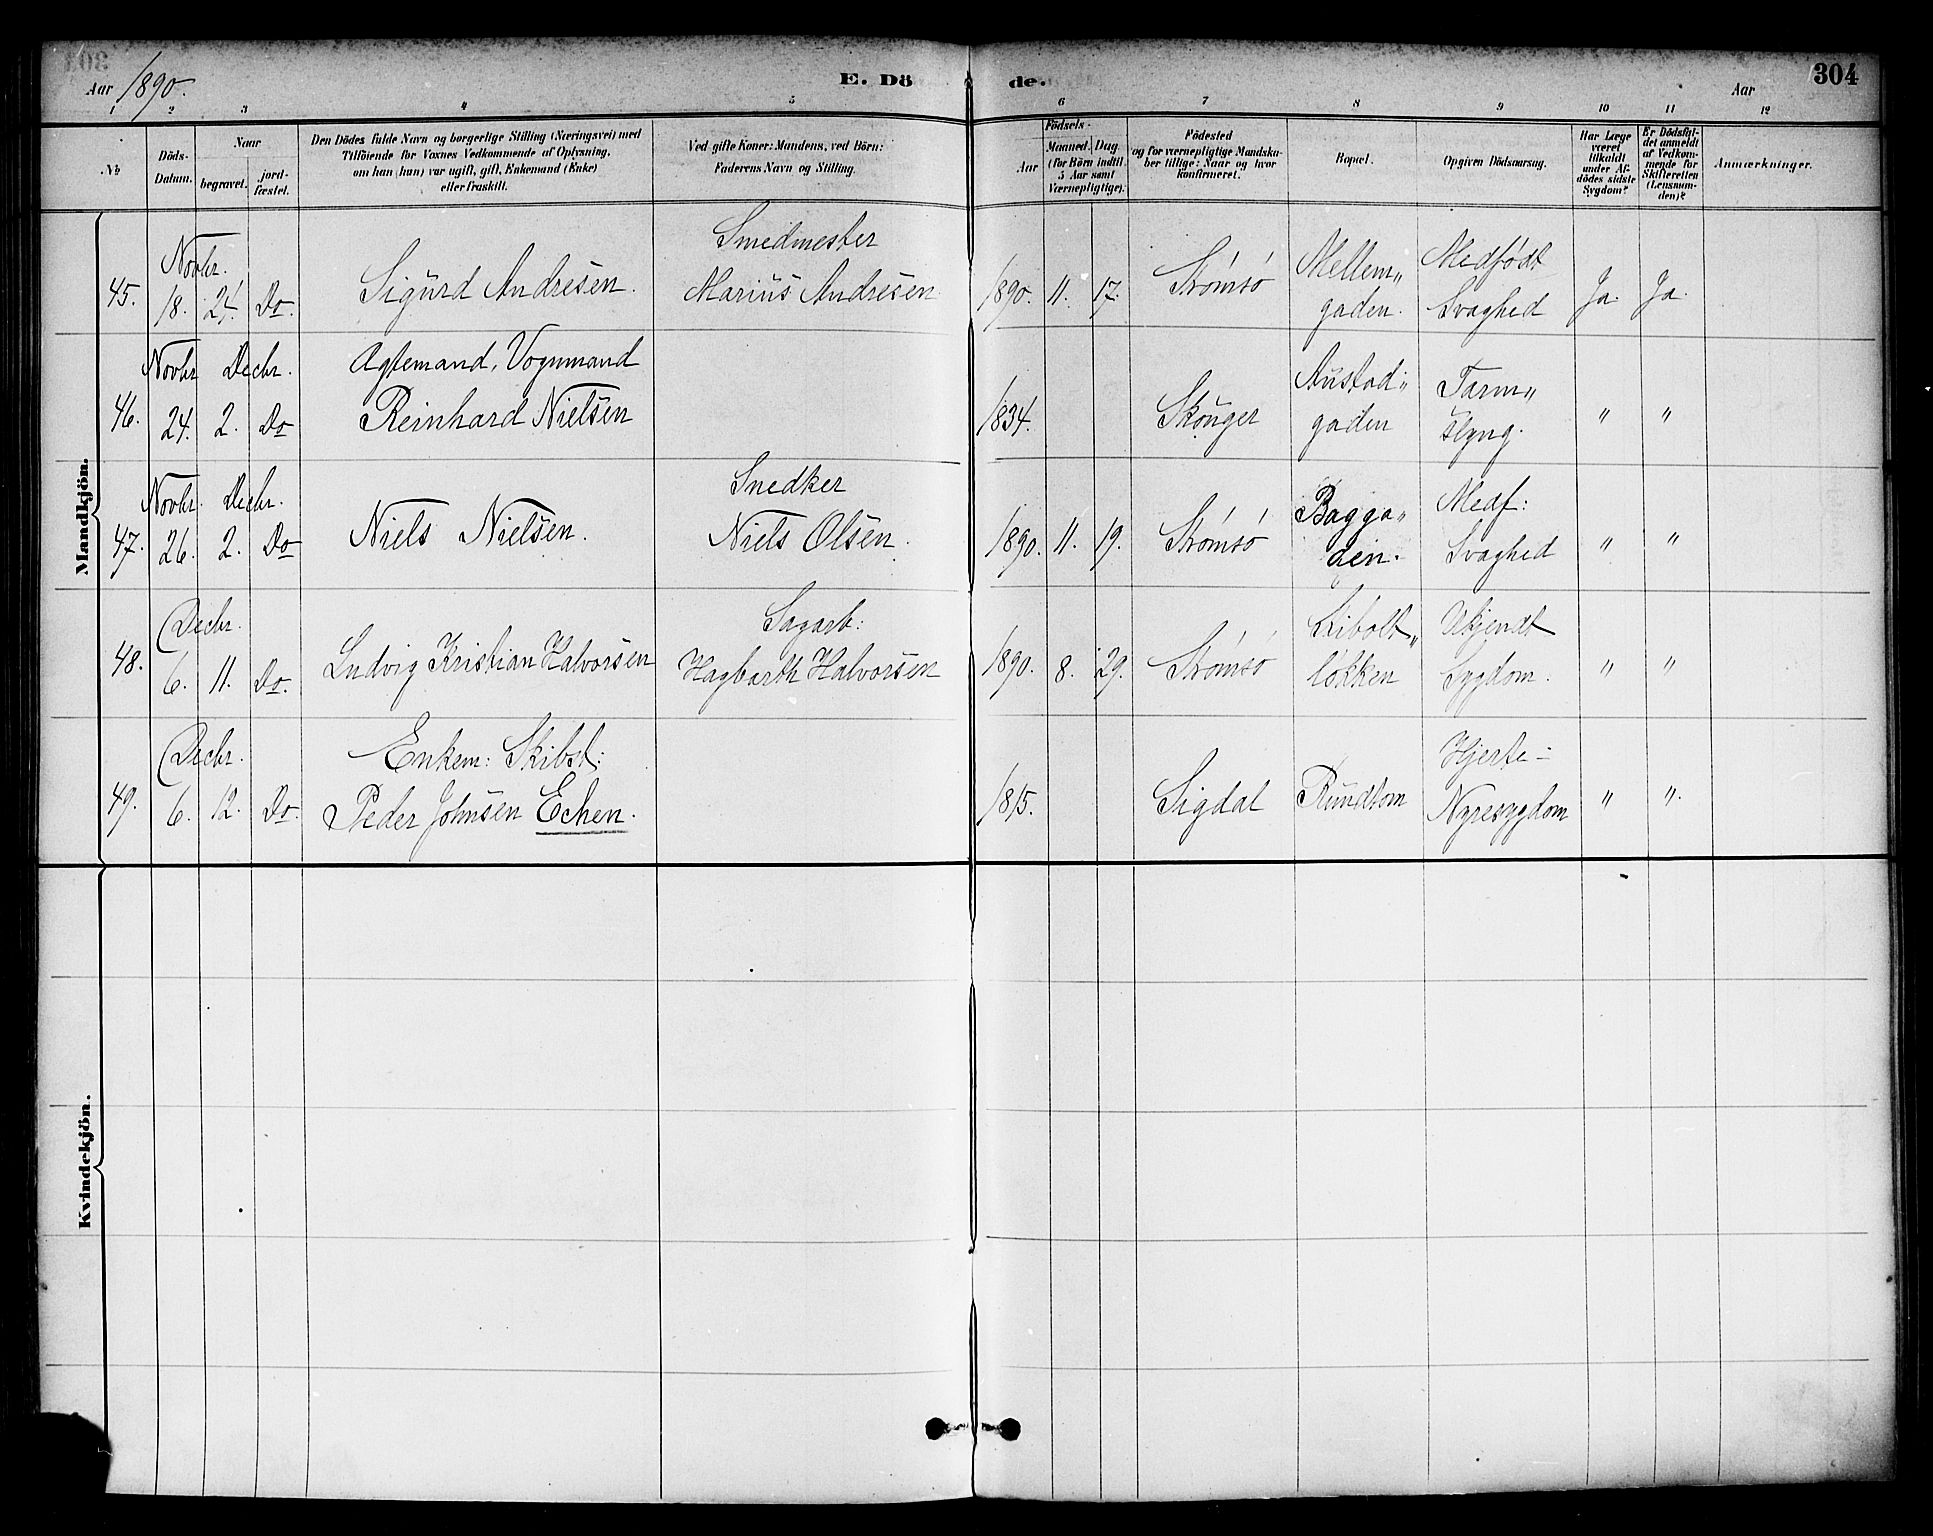 Aar 1890. E. Dö de. Aar 304
1 2 3 4 5 6 7 8 9 10 11 12
No
Döds-Datum.
Naar
begravet.
jordfæstet.
Den Dödes fulde Navn og borgerlige Stilling (Næringsvei) med
Tilföiende for Voxnes Vedkommende af Oplysning,
om han (hun) var ugift, gift, Enkemand (Enke)
eller fraskilt.
Ved gifte Koner: Mandens, ved Börn:
Faderens Navn og Stilling.
Födsels-
Aar
Maaned. Dag
(for Börn indtil
5 Aar samt
Værnepligtige).
Födested
og for værnepligtige Mandskaber tillige: Naar og hvor
konfirmeret.
Bopæl.
Opgiven Dödsaarsag.
Har Læge
været
tilkaldt
under Afdödes sidste
Sygdom?
Er Dödsfaldet anmeldt
af Vedkommende for
Skifteretten
(Lensmanden)?
Anmærkninger.
Mandkjön.
45. Novbr. 18. 24. Do. Sigurd Andresen. Smedmester Marius Andresen 1890. 11. 17. Strømsø Mellem„ gaden. Medfødt Svaghed Ja. Ja.
46. Novbr 24. Decbr. 2. Do Agtemand, Vognmand Reinhard Nielsen 1834. Skouger Austad„ gaden Tarm„ slyng. „ „
47. Novbr. 26. Decbr. 2. Do Niels Nielsen. Snedker Niels Olsen. 1890. 11. 19. Strømsø Bagga„ den. Medf: Svaghed „ „
48. Decbr. 6. 11. Do. Ludvig Kristian Halvorsen Sagarb: Hagbarth Halvorsen 1890. 8. 29. Strømsø Kibolt„ løkken Ukjendt Sygdom. „ „
49. Decbr. 6. 12. Do. Enkem: Skibst: Peder Johnsen Echen. 1815. Sigdal Rundtom Hjerte- Nyresygdom „ „
Kvindekjön.